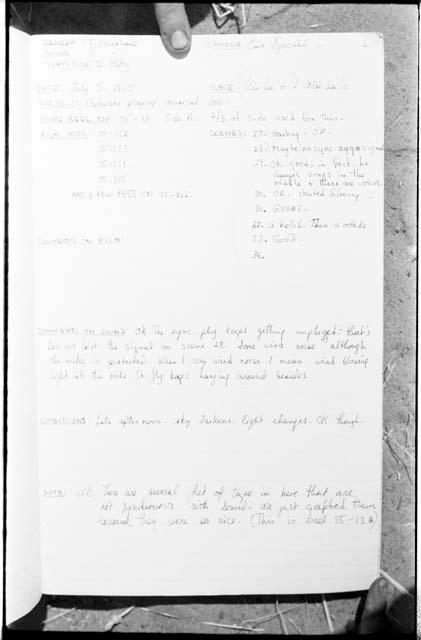 CAMERA
CAMERA One Special.
DATE July 2,
PLACE:
SUBJECT: playing musical bow.
SOUND REEL NO: 55-13 Side A.
2/5 of side used for this.
FILM NOS: 55-152
55-153
55-154
55-155
AND A FEW FEET ON
SCENES: 27. starting - OK.
28) Maybe no sync - again signal
29. OK good, in fact. he changes songs in the middle & there are voices.
30. OK. started blowing.
31. GREAT.
32. a botch. Then a retake.
33. Good.
34.
COMMENTS ON FILM
COMMENTS ON SOUND OK. The sync plug keeps getting unplugged: that's
how we lost the signal on scene 28. Some wind noise although
the mike is protected. When I say wind noise I mean wind blowing
right into the mike. A fly keeps hanging around besides.
CONDITIONS Late afternoon. sky darkens. light changes. OK though.
NB. There are several feet of tape in here that are
not synchronous with sound. We just grabbed them
because they were so nice. (This is reel 55-13